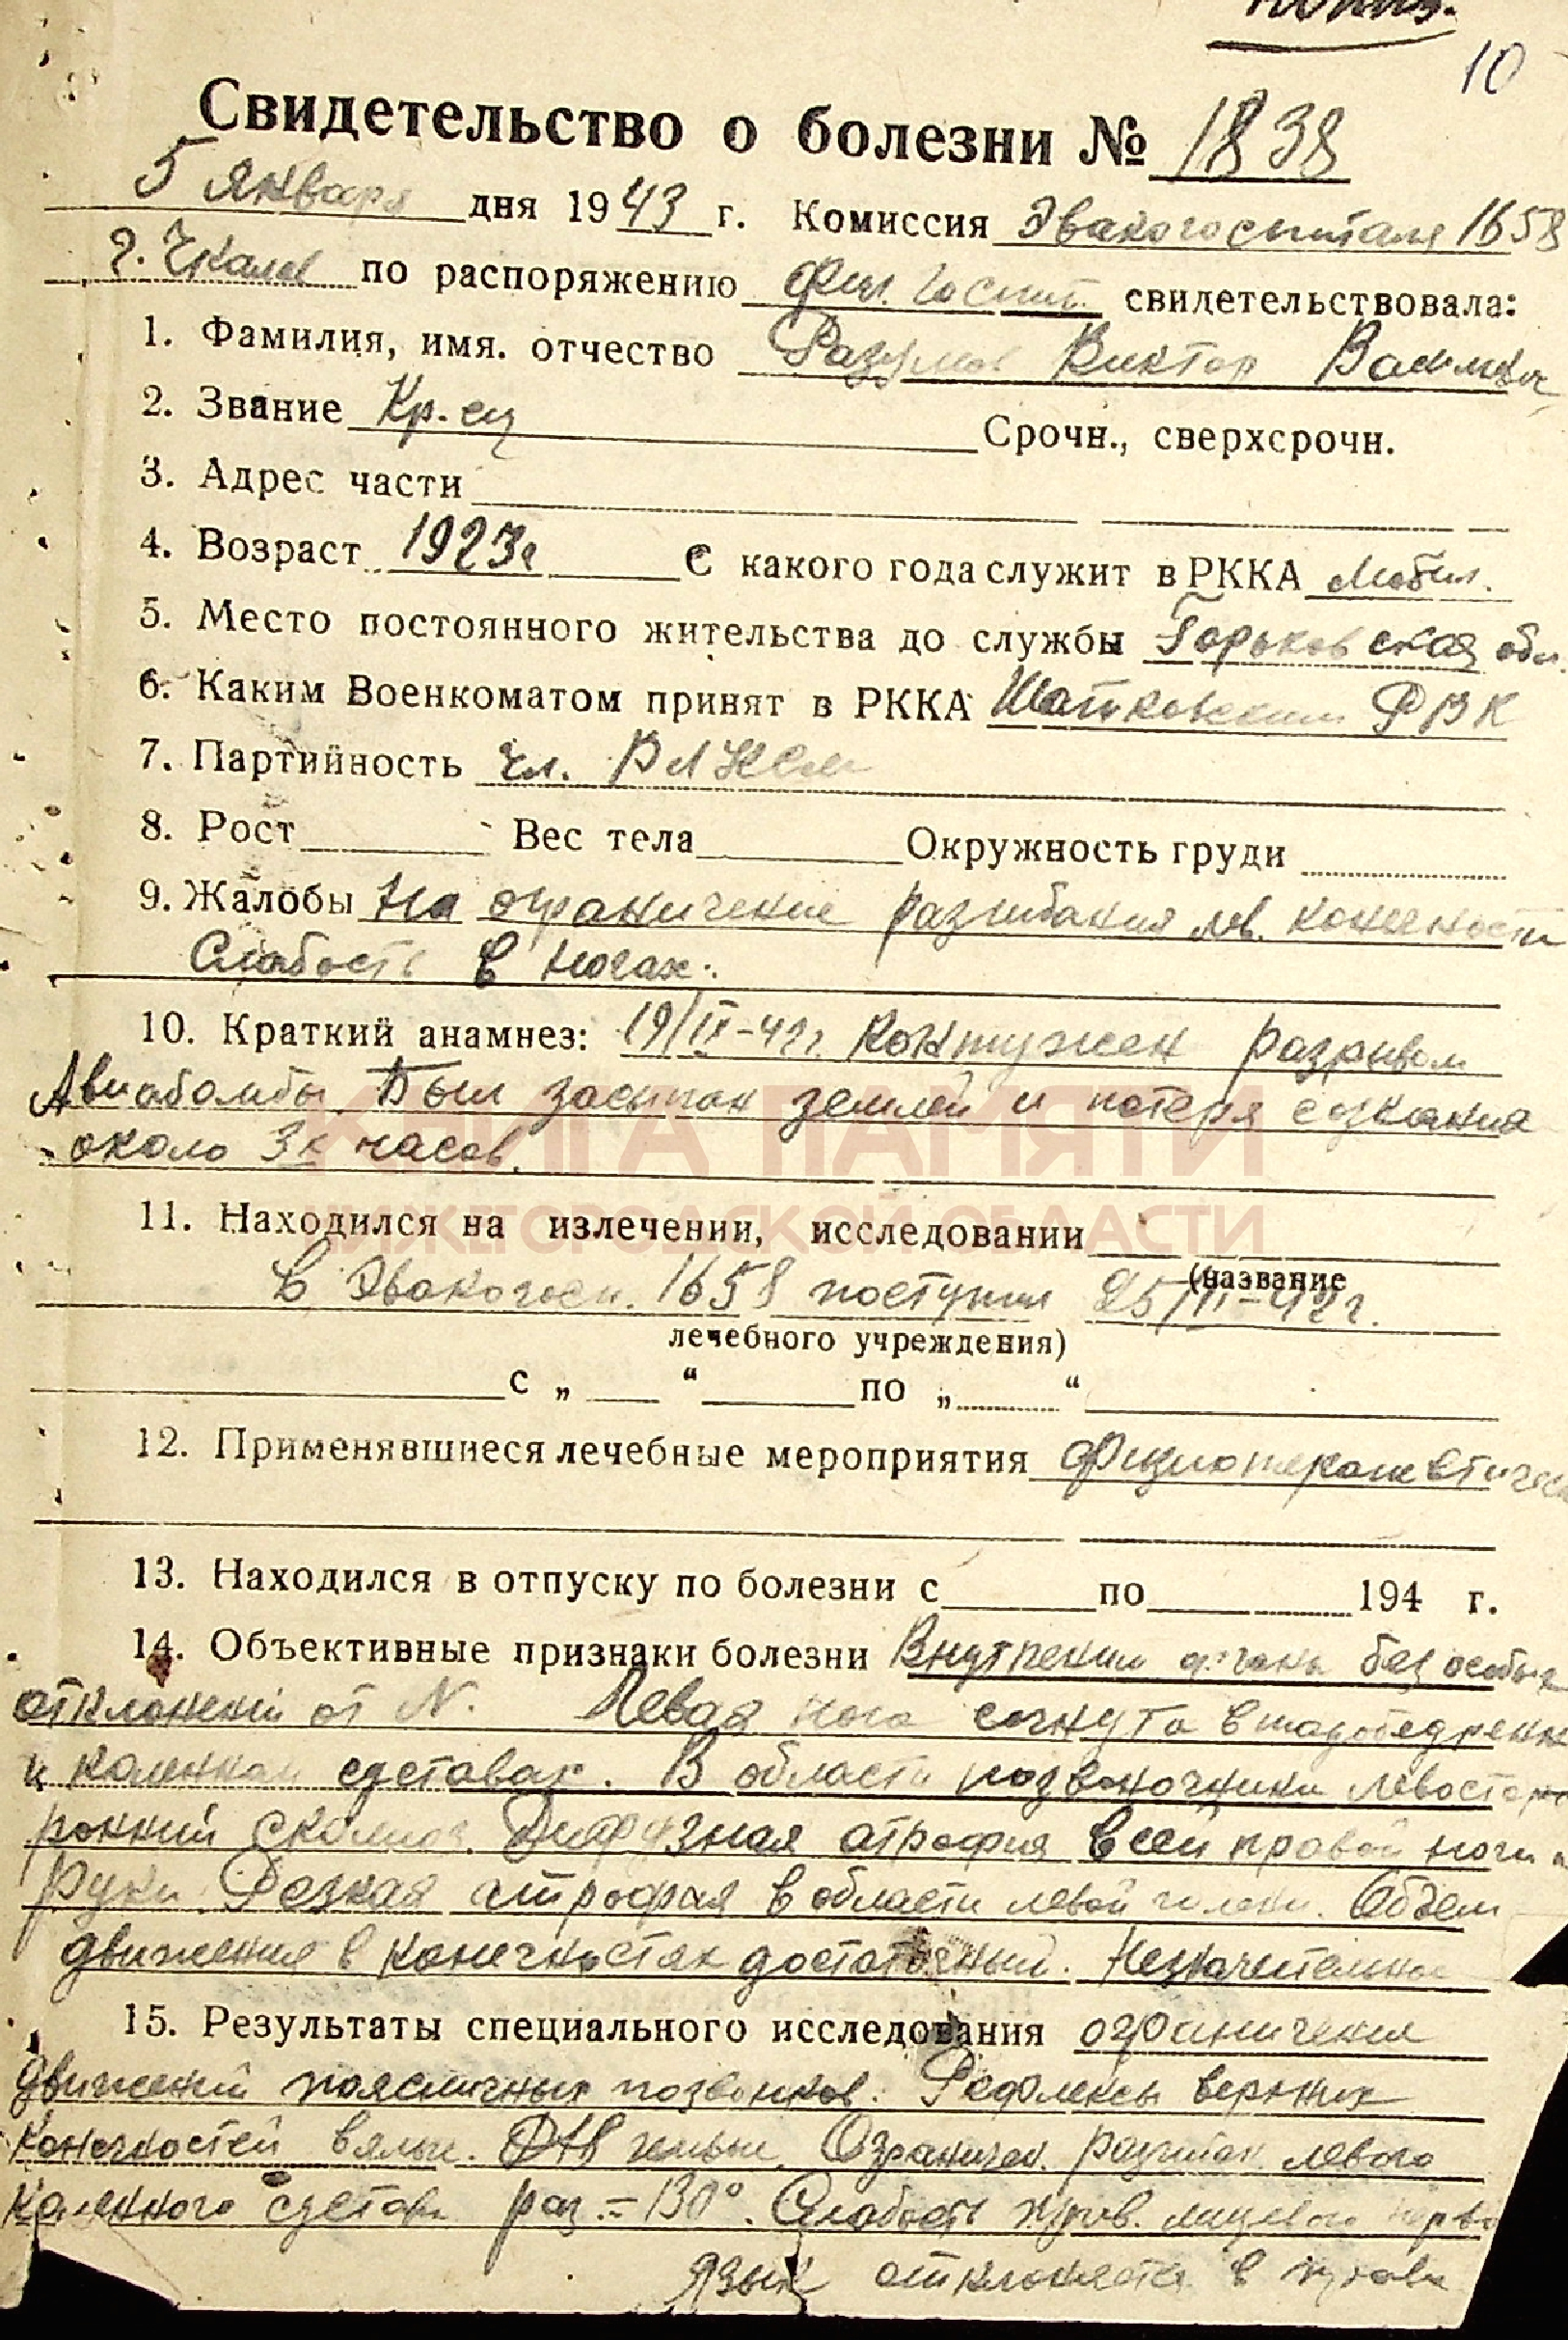 10
Свидетельство о болезни № 1838
5 января дня 1943 г. Комиссия Эвакогоспиталя 1658
г. Чкалов по распоряжению госпит. свидетельствовала:
1. Фамилия, имя. отчество Разумов Виктор
2. Звание Кр-ец Срочн., сверхсрочн.
3. Адрес части
4. Возраст 1923г С какого года служит в РККА Мобил.
5. Место постоянного жительства до службы Горьковская обл.
6. Каким Военкоматом принят в РККА Шатковским РВК
7. Партийность чл. ВЛКСМ
8. Рост Вес тела Окружность груди
9. Жалобы На ограничение разгибания лев. конечности
Слабость в ногах.
10. Краткий анамнез: Контужен разрывом
Авиабомбы. Был засыпан землей и потеря сознания
около 3х часов.
КНИГА ПАМЯТИ
НИЖЕГОРОДСКОЙ ОБЛАСТИ
11. Находился на излечении, исследовании
(название
в Эвакогосп. 1658 поступил
лечебного учреждения)
с „ “ по „ “
12. Применявшиеся лечебные мероприятия физиотерапевтическ
13. Находился в отпуску по болезни с по 194 г.
14. Объективные признаки болезни Внутренни органы без особых
отклонений от N. Левая нога согнута в тазобедренн
и коленном суставах. В области позвоночника левосто
ронний сколиоз. Диффузная атрофия всей правой ноги и
руки. Резкая атрофия в области левой голени. Объем
движения в конечностях достаточный. Незначительное
15. Результаты специального исследования ограничения
движений поясничных позвонков. Рефлексы верхних
конечностей вялые. Ограничен. разгибан. левого
коленного сустава раз. = 130°. Слабость прав. лицевого нерва
язык отклоняется в